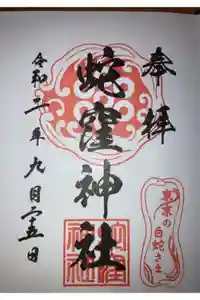 奉拝
蛇窪神社
令和二年九月二十五日
東京の白蛇さま